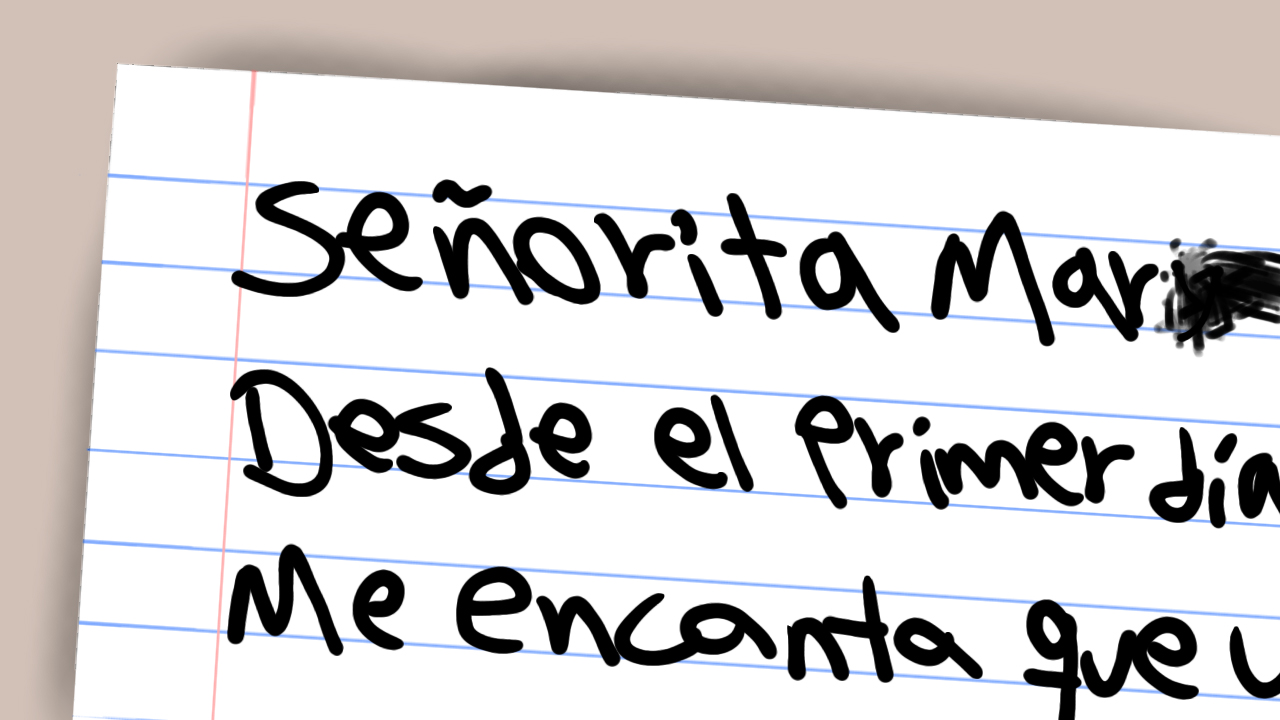 Señorita
Desde el Primer día
Me encanta que